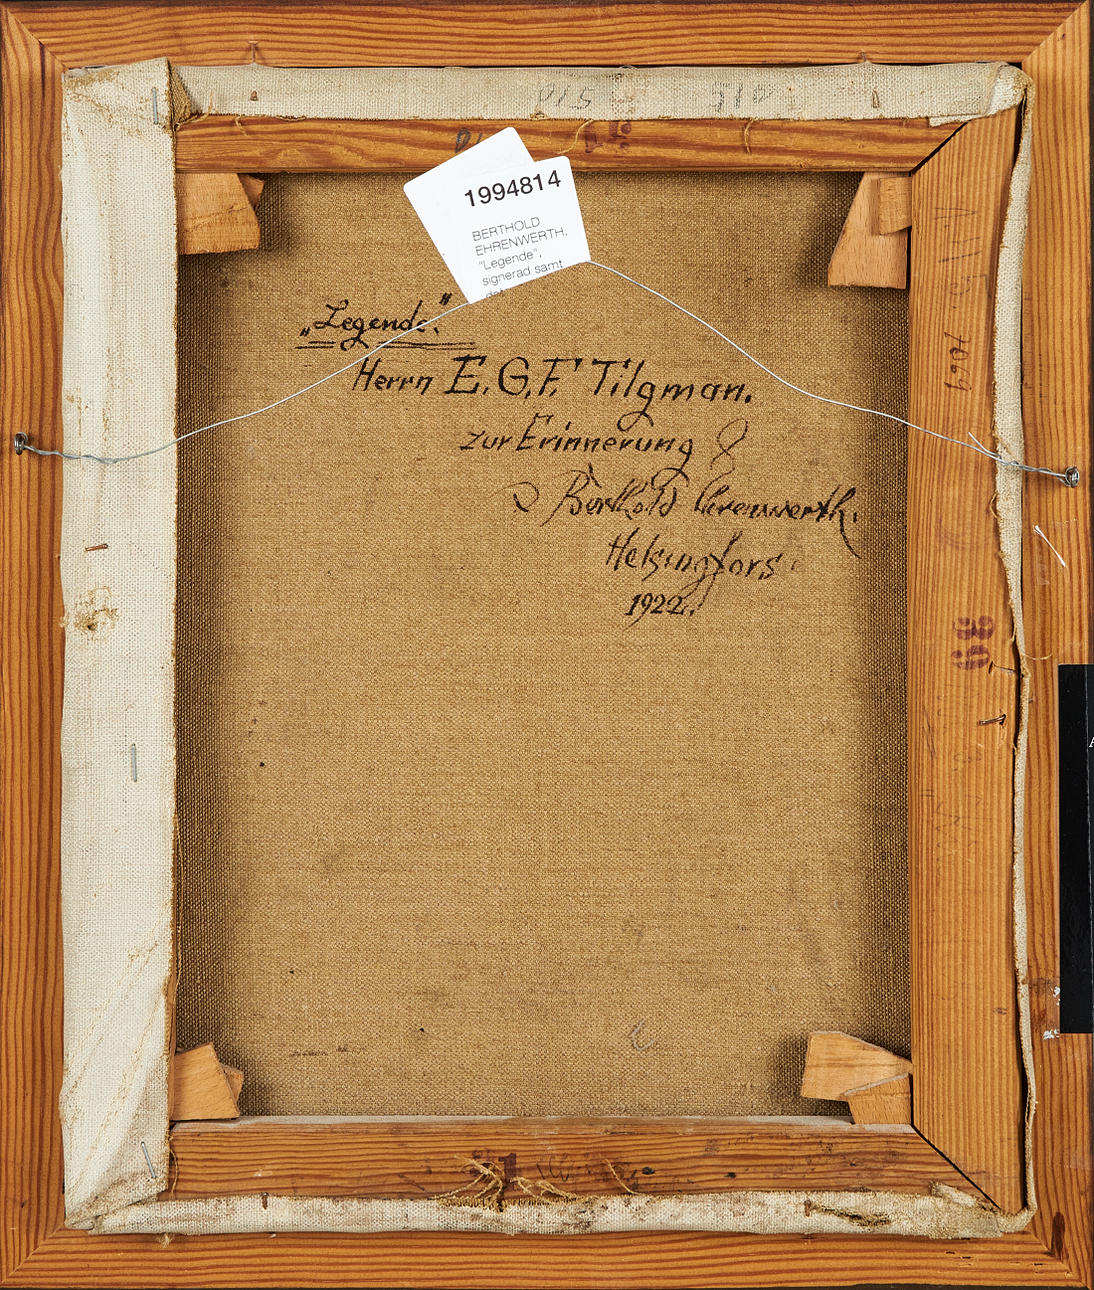 015 510
1994814
BERTHOLD
EHRENWERTH,
"Legende",
signerad samt
„Legende."
Herrn E.G.F. Tilgman.
zur Erinnerung
Berthold Ehrenwerth.
Helsingfors
1922.
39